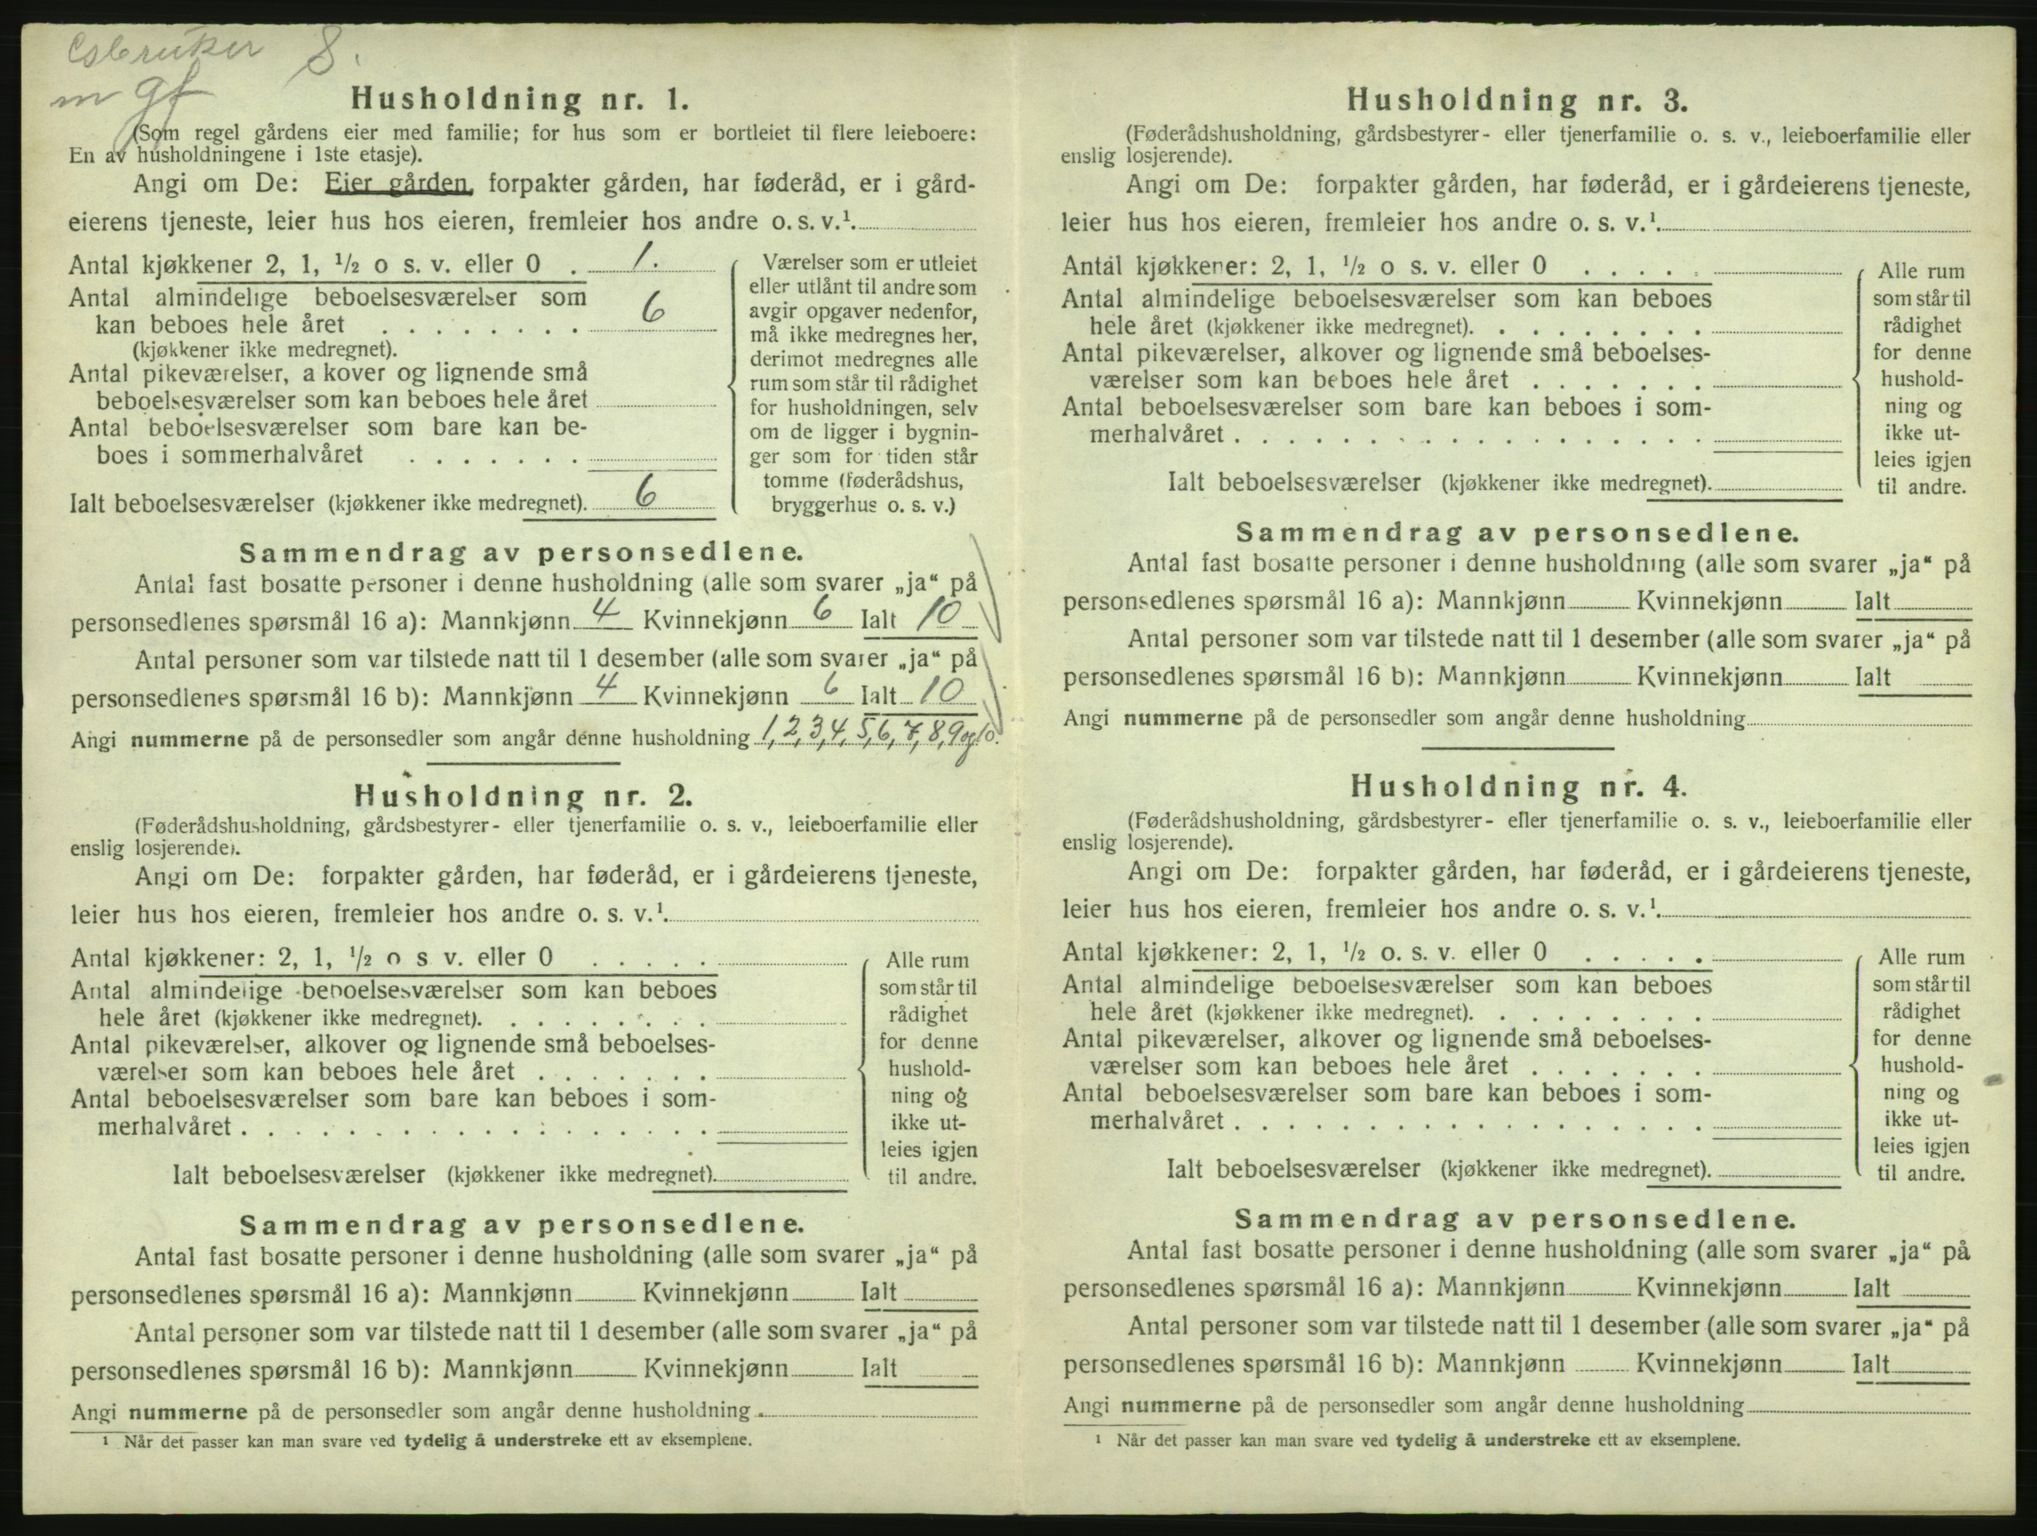 gf
Husholdning nr. 1.
(Som regel gårdens eier med familie; for hus som er bortleiet til flere leieboere:
En av husholdningene i 1ste etasje).
Angi om De: Eier gården, forpakter gården, har føderåd, er i gård-
eierens tjeneste, leier hus hos eieren, fremleier hos andre o. s. v.¹.
Antal kjøkkener 2, 1, ½ o s. v. eller 0 . 1.
Antal almindelige beboelsesværelser som
kan beboes hele året . . . . . . . . 6
(kjøkkener ikke medregnet).
Antal pikeværelser, a kover og lignende små
beboelsesværelser som kan beboes hele året
Antal beboelsesværelser som bare kan be-
boes i sommerhalvåret . . . . . . .
Ialt beboelsesværelser (kjøkkener ikke medregnet). 6
Værelser som er utleiet
eller utlånt til andre som
avgir opgaver nedenfor,
må ikke medregnes her,
derimot medregnes alle
rum som står til rådighet
for husholdningen, selv
om de ligger i bygnin-
ger som for tiden står
tomme (føderådshus,
bryggerhus o. s. v.)
Sammendrag av personsedlene.
Antal fast bosatte personer i denne husholdning (alle som svarer „ja“ på
personsedlenes spørsmål 16 a): Mannkjønn 4 Kvinnekjønn 6 Ialt 10
Antal personer som var tilstede natt til 1 desember (alle som svarer „ja“ på
personsedlenes spørsmål 16 b): Mannkjønn 4 Kvinnekjønn 6 Ialt 10
Angi nummerne på de personsedler som angår denne husholdning 1, 2, 3, 4, 5, 6, 7, 8, 9 og 10.
Husholdning nr. 2.
(Føderådshusholdning, gårdsbestyrer- eller tjenerfamilie o. s. v., leieboerfamilie eller
enslig losjerende).
Angi om De: forpakter gården, har føderåd, er i gårdeierens tjeneste,
leier hus hos eieren, fremleier hos andre o. s. v.¹.
Antal kjøkkener: 2, 1, ½ o s v. eller 0 . . . . .
Antal almindelige beboelsesværelser som kan beboes
hele året (kjøkkener ikke medregnet). . . . . . . . .
Antal pikeværelser, alkover og lignende små beboelses-
værelser som kan beboes hele året . . . . . . .
Antal beboelsesværelser som bare kan beboes i som-
merhalvåret . . . . . . . . . . . . . . . . . .
Ialt beboelsesværelser (kjøkkener ikke medregnet).
Alle rum
som står til
rådighet
for denne
hushold-
ning og
ikke ut-
leies igjen
til andre.
Sammendrag av personsedlene.
Antal fast bosatte personer i denne husholdning (alle som svarer „ja“ på
personsedlenes spørsmål 16 a): Mannkjønn Kvinnekjønn Ialt
Antal personer som var tilstede natt til 1 desember (alle som svarer „ja“ på
personsedlenes spørsmål 16 b): Mannkjønn Kvinnekjønn Ialt
Angi nummerne på de personsedler som angår denne husholdning
¹ Når det passer kan man svare ved tydelig å understreke ett av eksemplene.
Husholdning nr. 3.
(Føderådshusholdning, gårdsbestyrer- eller tjenerfamilie o. s. v., leieboerfamilie eller
enslig losjerende).
Angi om De: forpakter gården, har føderåd, er i gårdeierens tjeneste,
leier hus hos eieren, fremleier hos andre o. s. v.¹.
Antal kjøkkener: 2, 1, ½ o s. v. eller 0 . . . . .
Antal almindelige beboelsesværelser som kan beboes
hele året (kjøkkener ikke medregnet). . . . . . . . .
Antal pikeværelser, alkover og lignende små beboelses-
værelser som kan beboes hele året . . . . . . .
Antal beboelsesværelser som bare kan beboes i som-
merhalvåret . . . . . . . . . . . . . . . . . .
Ialt beboelsesværelser (kjøkkener ikke medregnet).
Alle rum
som står til
rådighet
for denne
hushold-
ning og
ikke ut-
leies igjen
til andre.
Sammendrag av personsedlene.
Antal fast bosatte personer i denne husholdning (alle som svarer „ja“ på
personsedlenes spørsmål 16 a): Mannkjønn Kvinnekjønn Ialt
Antal personer som var tilstede natt til 1 desember (alle som svarer „ja“ på
personsedlenes spørsmål 16 b): Mannkjønn Kvinnekjønn Ialt
Angi nummerne på de personsedler som angår denne husholdning
Husholdning nr. 4.
(Føderådshusholdning, gårdsbestyrer- eller tjenerfamilie o. s. v., leieboerfamilie eller
enslig losjerende).
Angi om De: forpakter gården, har føderåd, er i gårdeierens tjeneste,
leier hus hos eieren, fremleier hos andre o. s. v.¹.
Antal kjøkkener: 2, 1, ½ o. s. v. eller 0 . . . . .
Antal almindelige beboelsesværelser som kan beboes
hele året (kjøkkener ikke medregnet). . . . . . . . .
Antal pikeværelser, alkover og lignende små beboelses-
værelser som kan beboes hele året . . . . . . .
Antal beboelsesværelser som bare kan beboes i som-
merhalvåret . . . . . . . . . . . . . . . . . .
Ialt beboelsesværelser (kjøkkener ikke medregnet).
Alle rum
som står til
rådighet
for denne
hushold-
ning og
ikke ut-
leies igjen
til andre.
Sammendrag av personsedlene.
Antal fast bosatte personer i denne husholdning (alle som svarer „ja“ på
personsedlenes spørsmål 16 a): Mannkjønn Kvinnekjønn Ialt
Antal personer som var tilstede natt til 1 desember (alle som svarer „ja“ på
personsedlenes spørsmål 16 b): Mannkjønn Kvinnekjønn Ialt
Angi nummerne på de personsedler som angår denne husholdning
¹ Når det passer kan man svare ved tydelig å understreke ett av eksemplene.